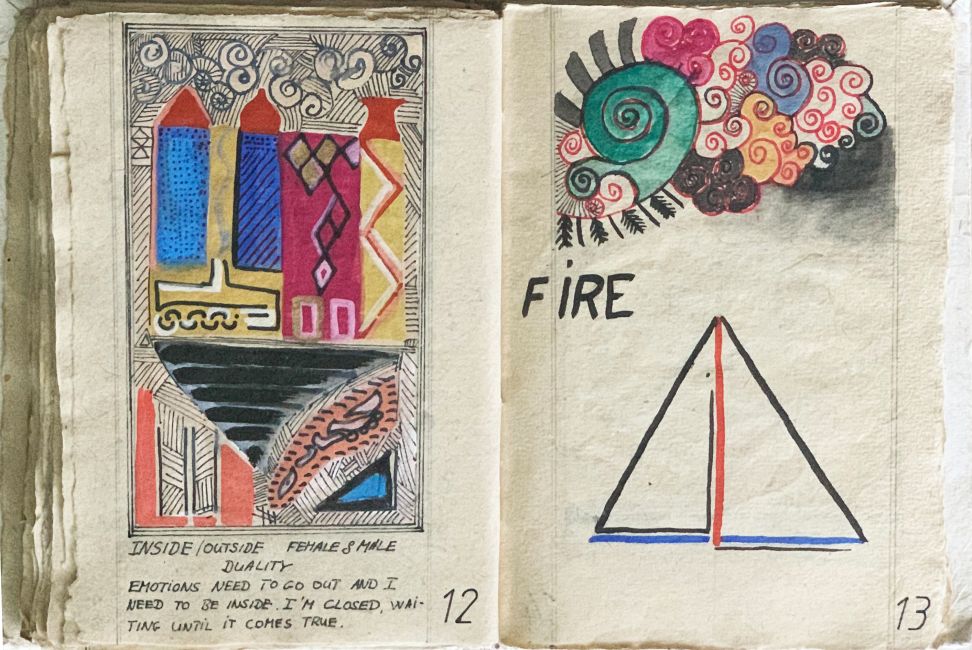 INSIDE/OUTSIDE FEMALE & MALE
DUALITY
EMOTIONS NEED TO GO OUT AND I
NEED TO BE INSIDE. I'M CLOSED, WAI-
TING UNTIL IT COMES TRUE.
12
FIRE
13